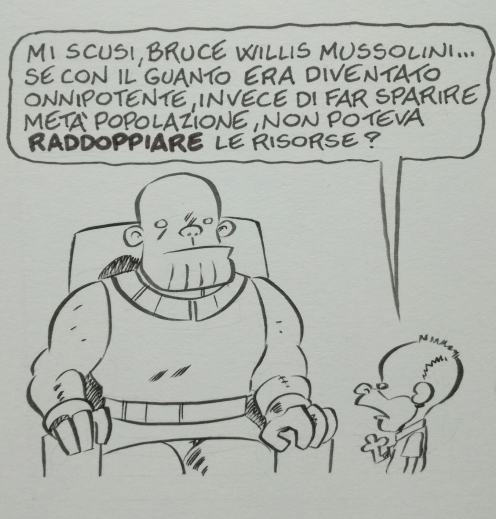 MI SCUSI, BRUCE WILLIS MUSSOLINI...
SE CON IL GUANTO ERA DIVENTATO
ONNIPOTENTE, INVECE DI FAR SPARIRE
METÀ POPOLAZIONE, NON POTEVA
RADDOPPIARE LE RISORSE?